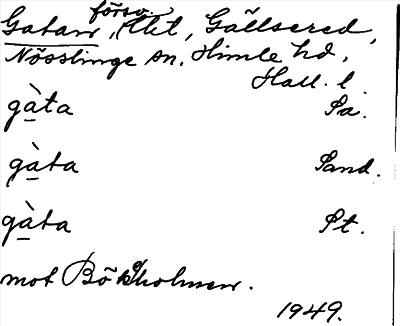 försv.
Gatan, Ålet, Gällsered,
Nösslinge sn. Himle hd.
Hall. l.
gàta Sa.
gàta Sand.
gàta St.
mot Bökholmen.
1949.